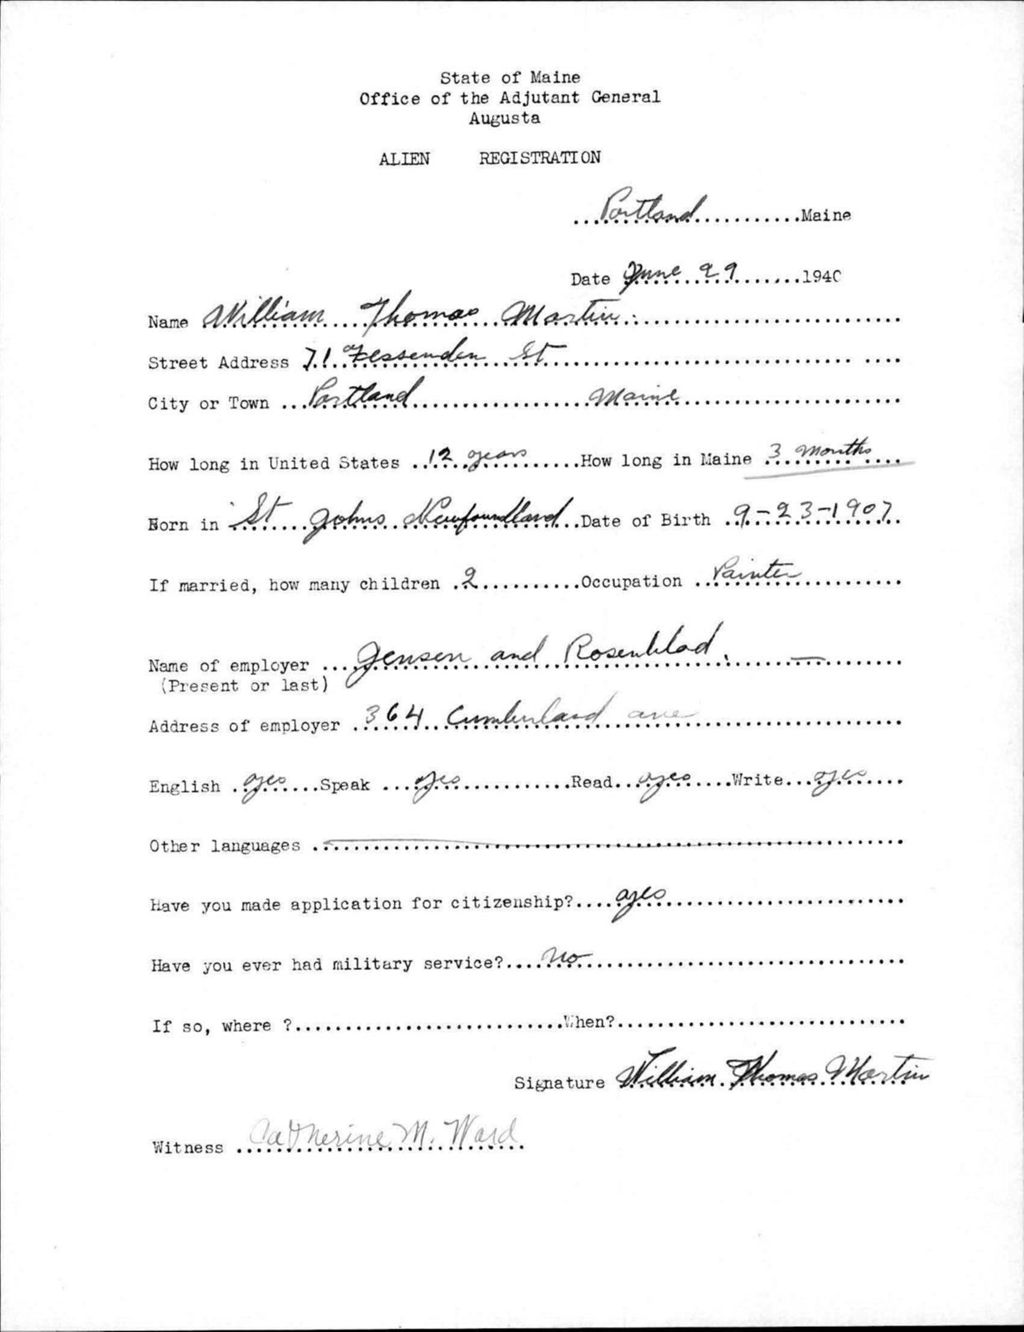 State of Maine
Office of the Adjutant General
Augusta
ALIEN REGISTRATION
...Portland...........Maine
Date June 29.......1940
Name William Thomas Martin
Street Address 71 Fessenden St
City or Town Portland Maine
How long in United States 12 years How long in Maine 3 months
Born in St Johns Newfoundland Date of Birth 9-23-1907
If married, how many children 2 Occupation Painter
Name of employer Jensen and Rosenblad.
(Present or last)
Address of employer 364 Cumberland ave
English yes Speak yes Read yes Write yes
Other languages
Have you made application for citizenship? yes
Have you ever had military service? No
If so, where ? When?
Signature William Thomas Martin
Witness Catherine M. Ward